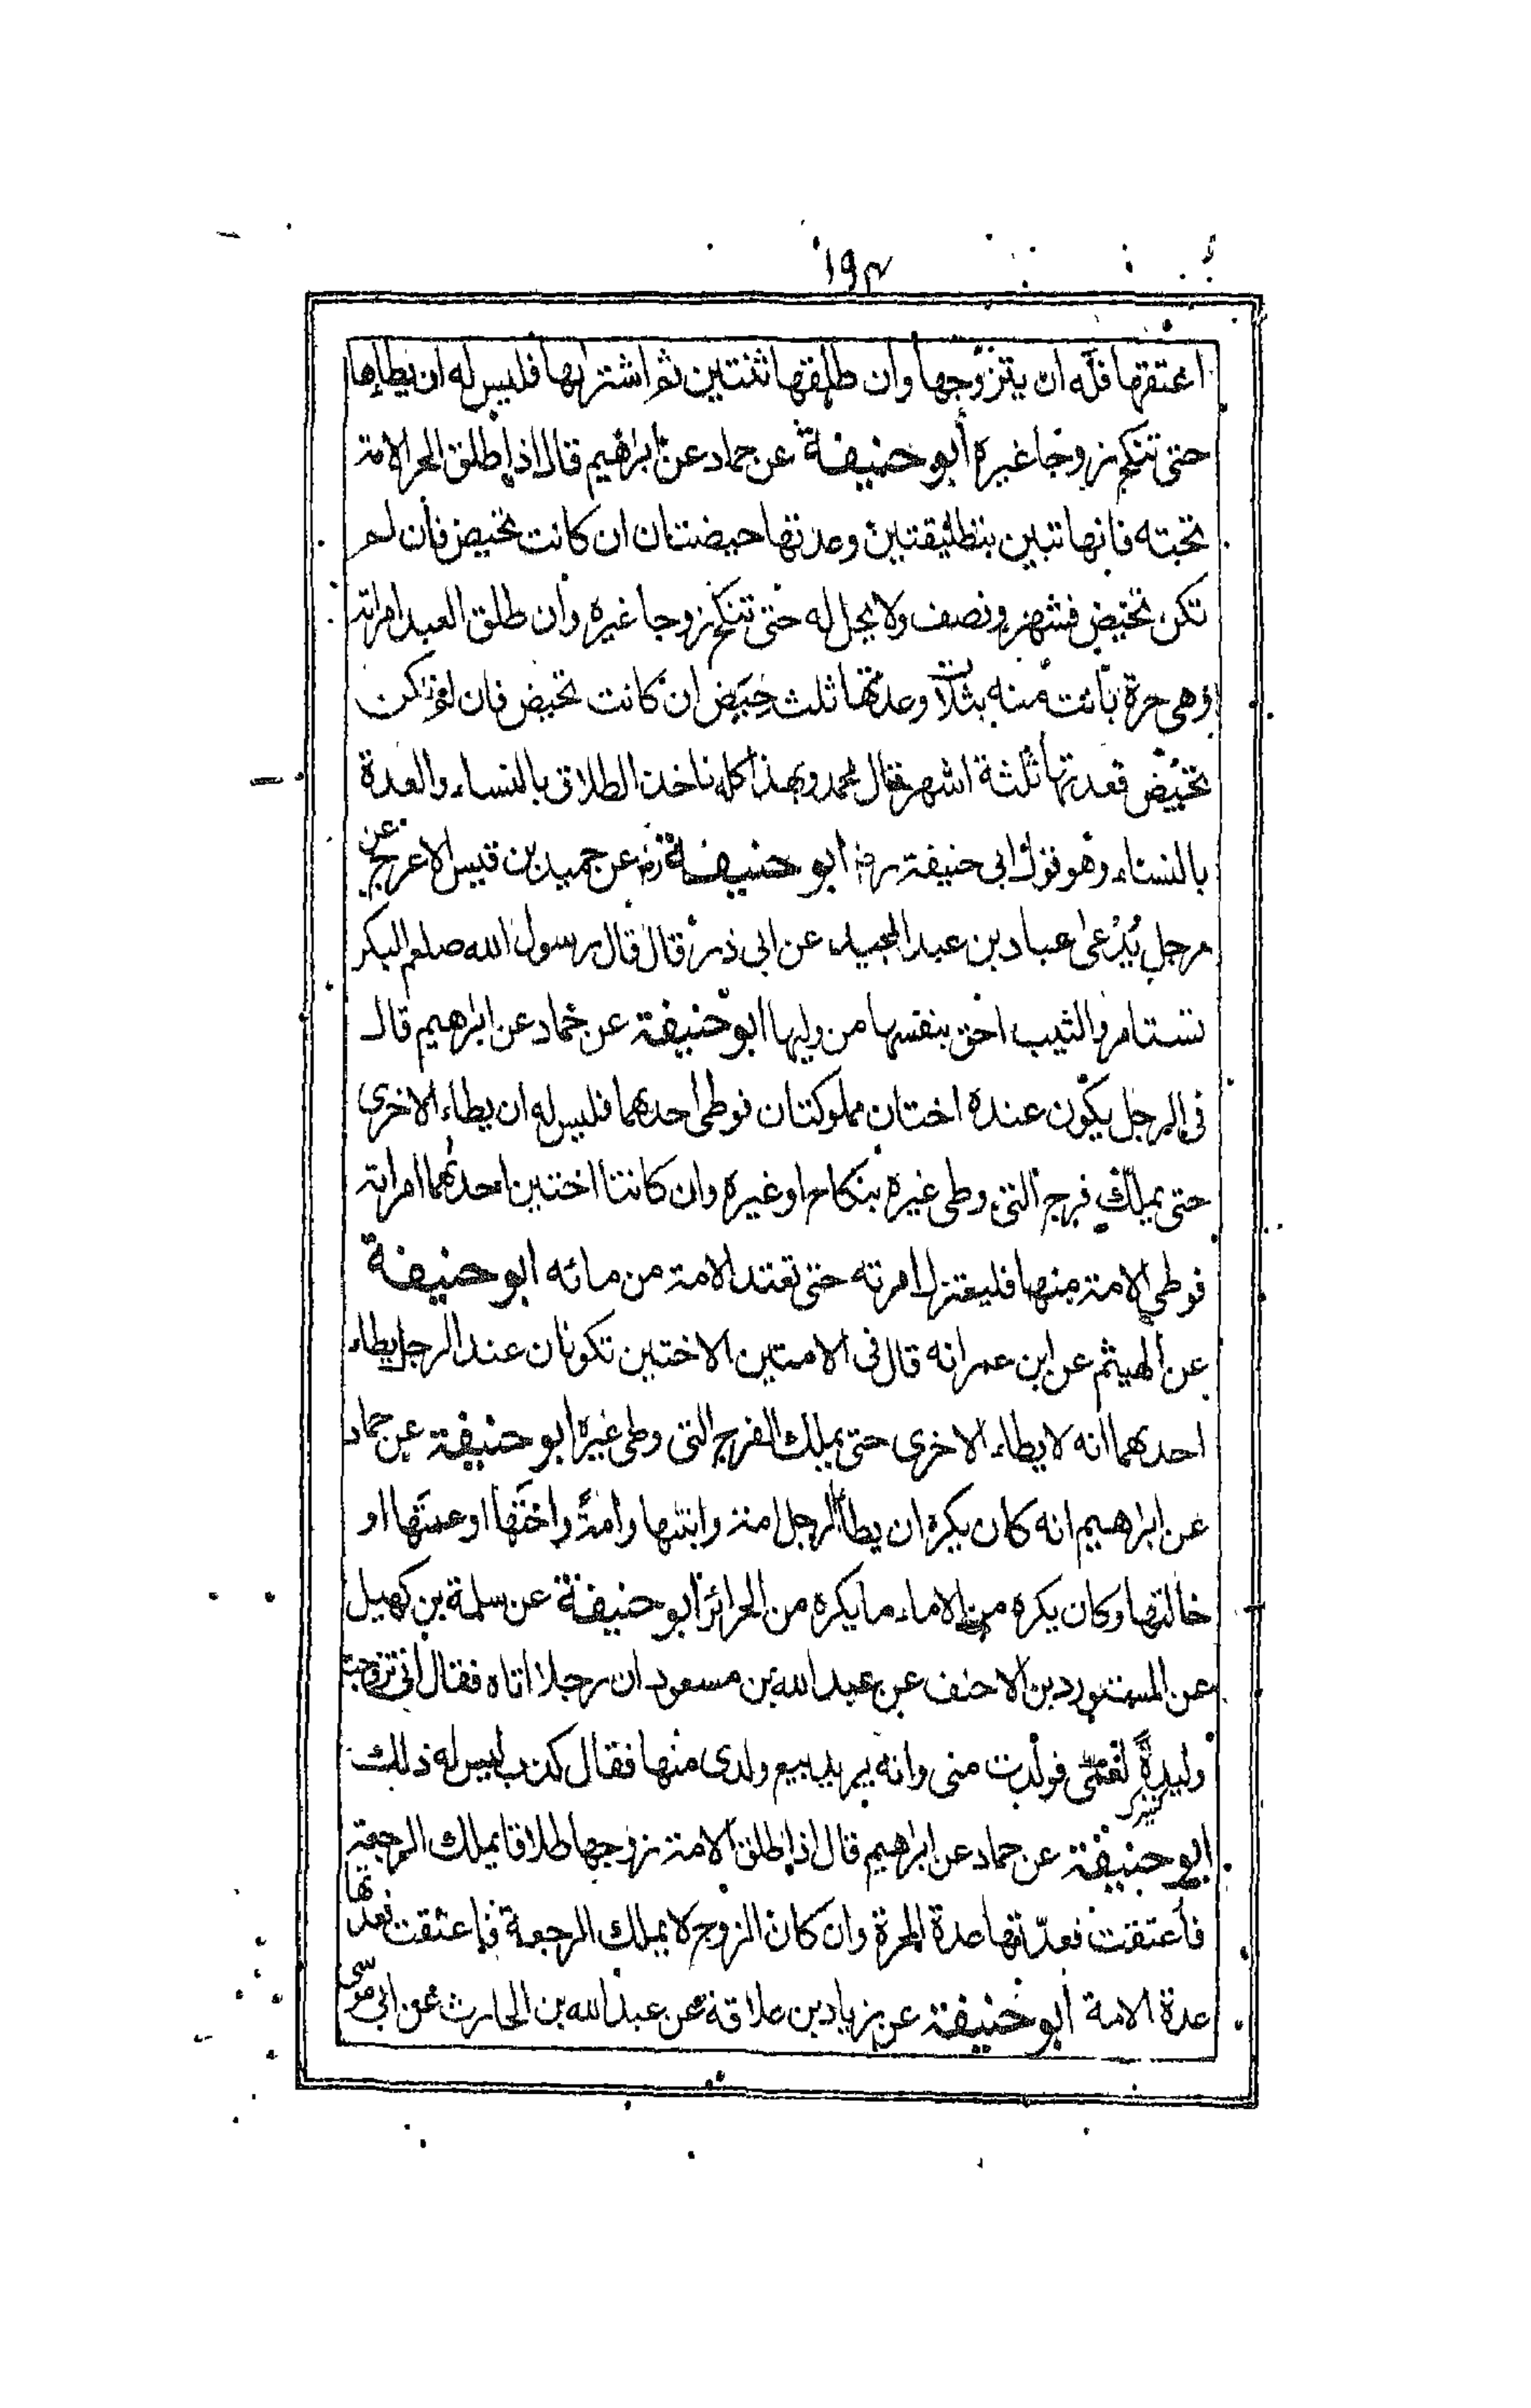 ١٩٣
اعتقها فله ان يتزوجها وان طلقها ثنتين ثم اشترابها فليس له ان يطاءها
حتى تنكح زوجا غيره أبو حنيفة عن حماد عن ابراهيم قال اذا طلق الحر الامة
تحته فانها تبين بتطليقتين وعدتها حيضتان ان كانت تحيض فان لم
تكن تحيض فشهر ونصف ولا يحل له حتى تنكح زوجا غيره وان طلق العبد امراته
وهى حرة بانت منه بثلاث وعدتها ثلث حيض ان كانت تحيض فان لم تكن
تحيض فعدتها ثلثة اشهر قال محمد وبهذا كله ناخذ الطلاق بالنساء والعدة
بالنساء وهو قول ابى حنيفة رض ابو حنيفة رض عن حميد بن قيس الاعرج عن
رجل يُدعى عباد بن عبد المجيد عن ابى ذر قال قال رسول الله صلعم البكر
تستامر والثيب احق بنفسها من وليها ابو حنيفة عن حماد عن ابراهيم قال
فى الرجل يكون عنده اختان مملوكتان فوطى احدهما فليس له ان يطاء الاخرى
حتى يملك فرج التى وطى غيره بنكاح او غيره وان كانتا اختين احدهما امراته
فوطى الامة منها فليعتزل امرته حتى تعتد الامة من مائه ابو حنيفة
عن الهيثم عن ابن عمر انه قال فى الامتين الاختين تكونان عند الرجل يطاء
احدهما انه لا يطاء الاخرى حتى يملك الفرج التى وطى غيره ابو حنيفة عن حماد
عن ابراهيم انه كان يكره ان يطأ الرجل امة وابنتها وامةً واختها او عمتها او
خالتها وكان يكره من الاماء ما يكره من الحرائر أبو حنيفة عن سلمة بن كهيل
عن المستورد بن الاحنف عن عبد الله بن مسعود ان رجلا اتاه فقال انى تزوجت
وليدةً لعمّى فولدت منى وانه يريد بيع ولدى منها فقال كذب ليس له ذلك
كنيزك
ابو حنيفة عن حماد عن ابراهيم قال اذا طلق الامة زوجها طلاقا يملك الرجعة
فأعتقت فعدّتها عدة الحرة وان كان الزوج لا يملك الرجعة فاعتقت فعدّتها
عدة الامة أبو حنيفة عن زياد بن علاقة عن عبد الله بن الحارث عن ابى موسى